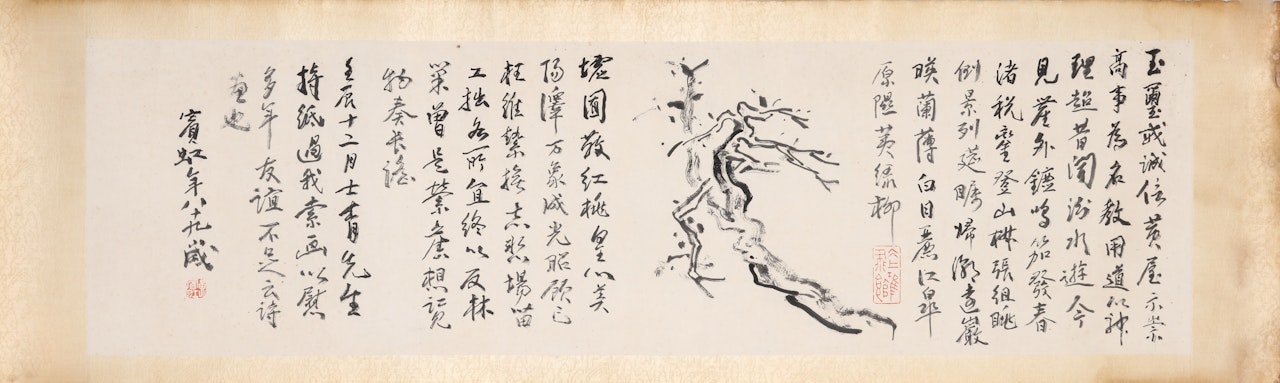 玉璽戒誠信黃屋示崇
高事為名教用道以神
理超昔聞汾水遊今
見塵外鑣鳴笳發春
渚稅鑾登山椒張組眺
倒景列筵矚歸潮遠巖
暎蘭薄白日麗江皋
原隰荑綠柳
墟囿散紅桃皇心美
陽澤万象咸光昭顧己
枉維縶撫志慙場苗
工拙各所宜終以反林
巢曾是縈舊想覽
物奏長謠
壬辰十二月士青先生
持紙過我索画以慰
多年友誼不足云詩
畫也
賓虹年八十九歲